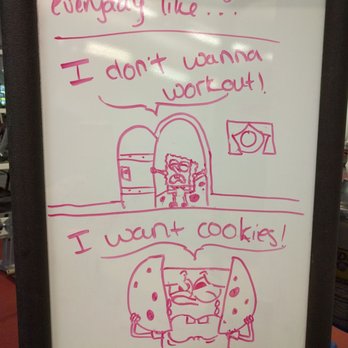 everyday like...
I don't wanna
workout!
I want cookies!